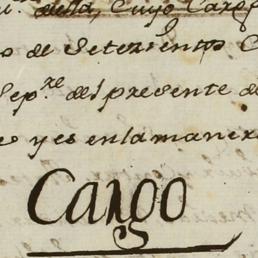 della, Cuyo Cargo
de Setezientos
Sep.re del presente de
yes en la manera
Cargo